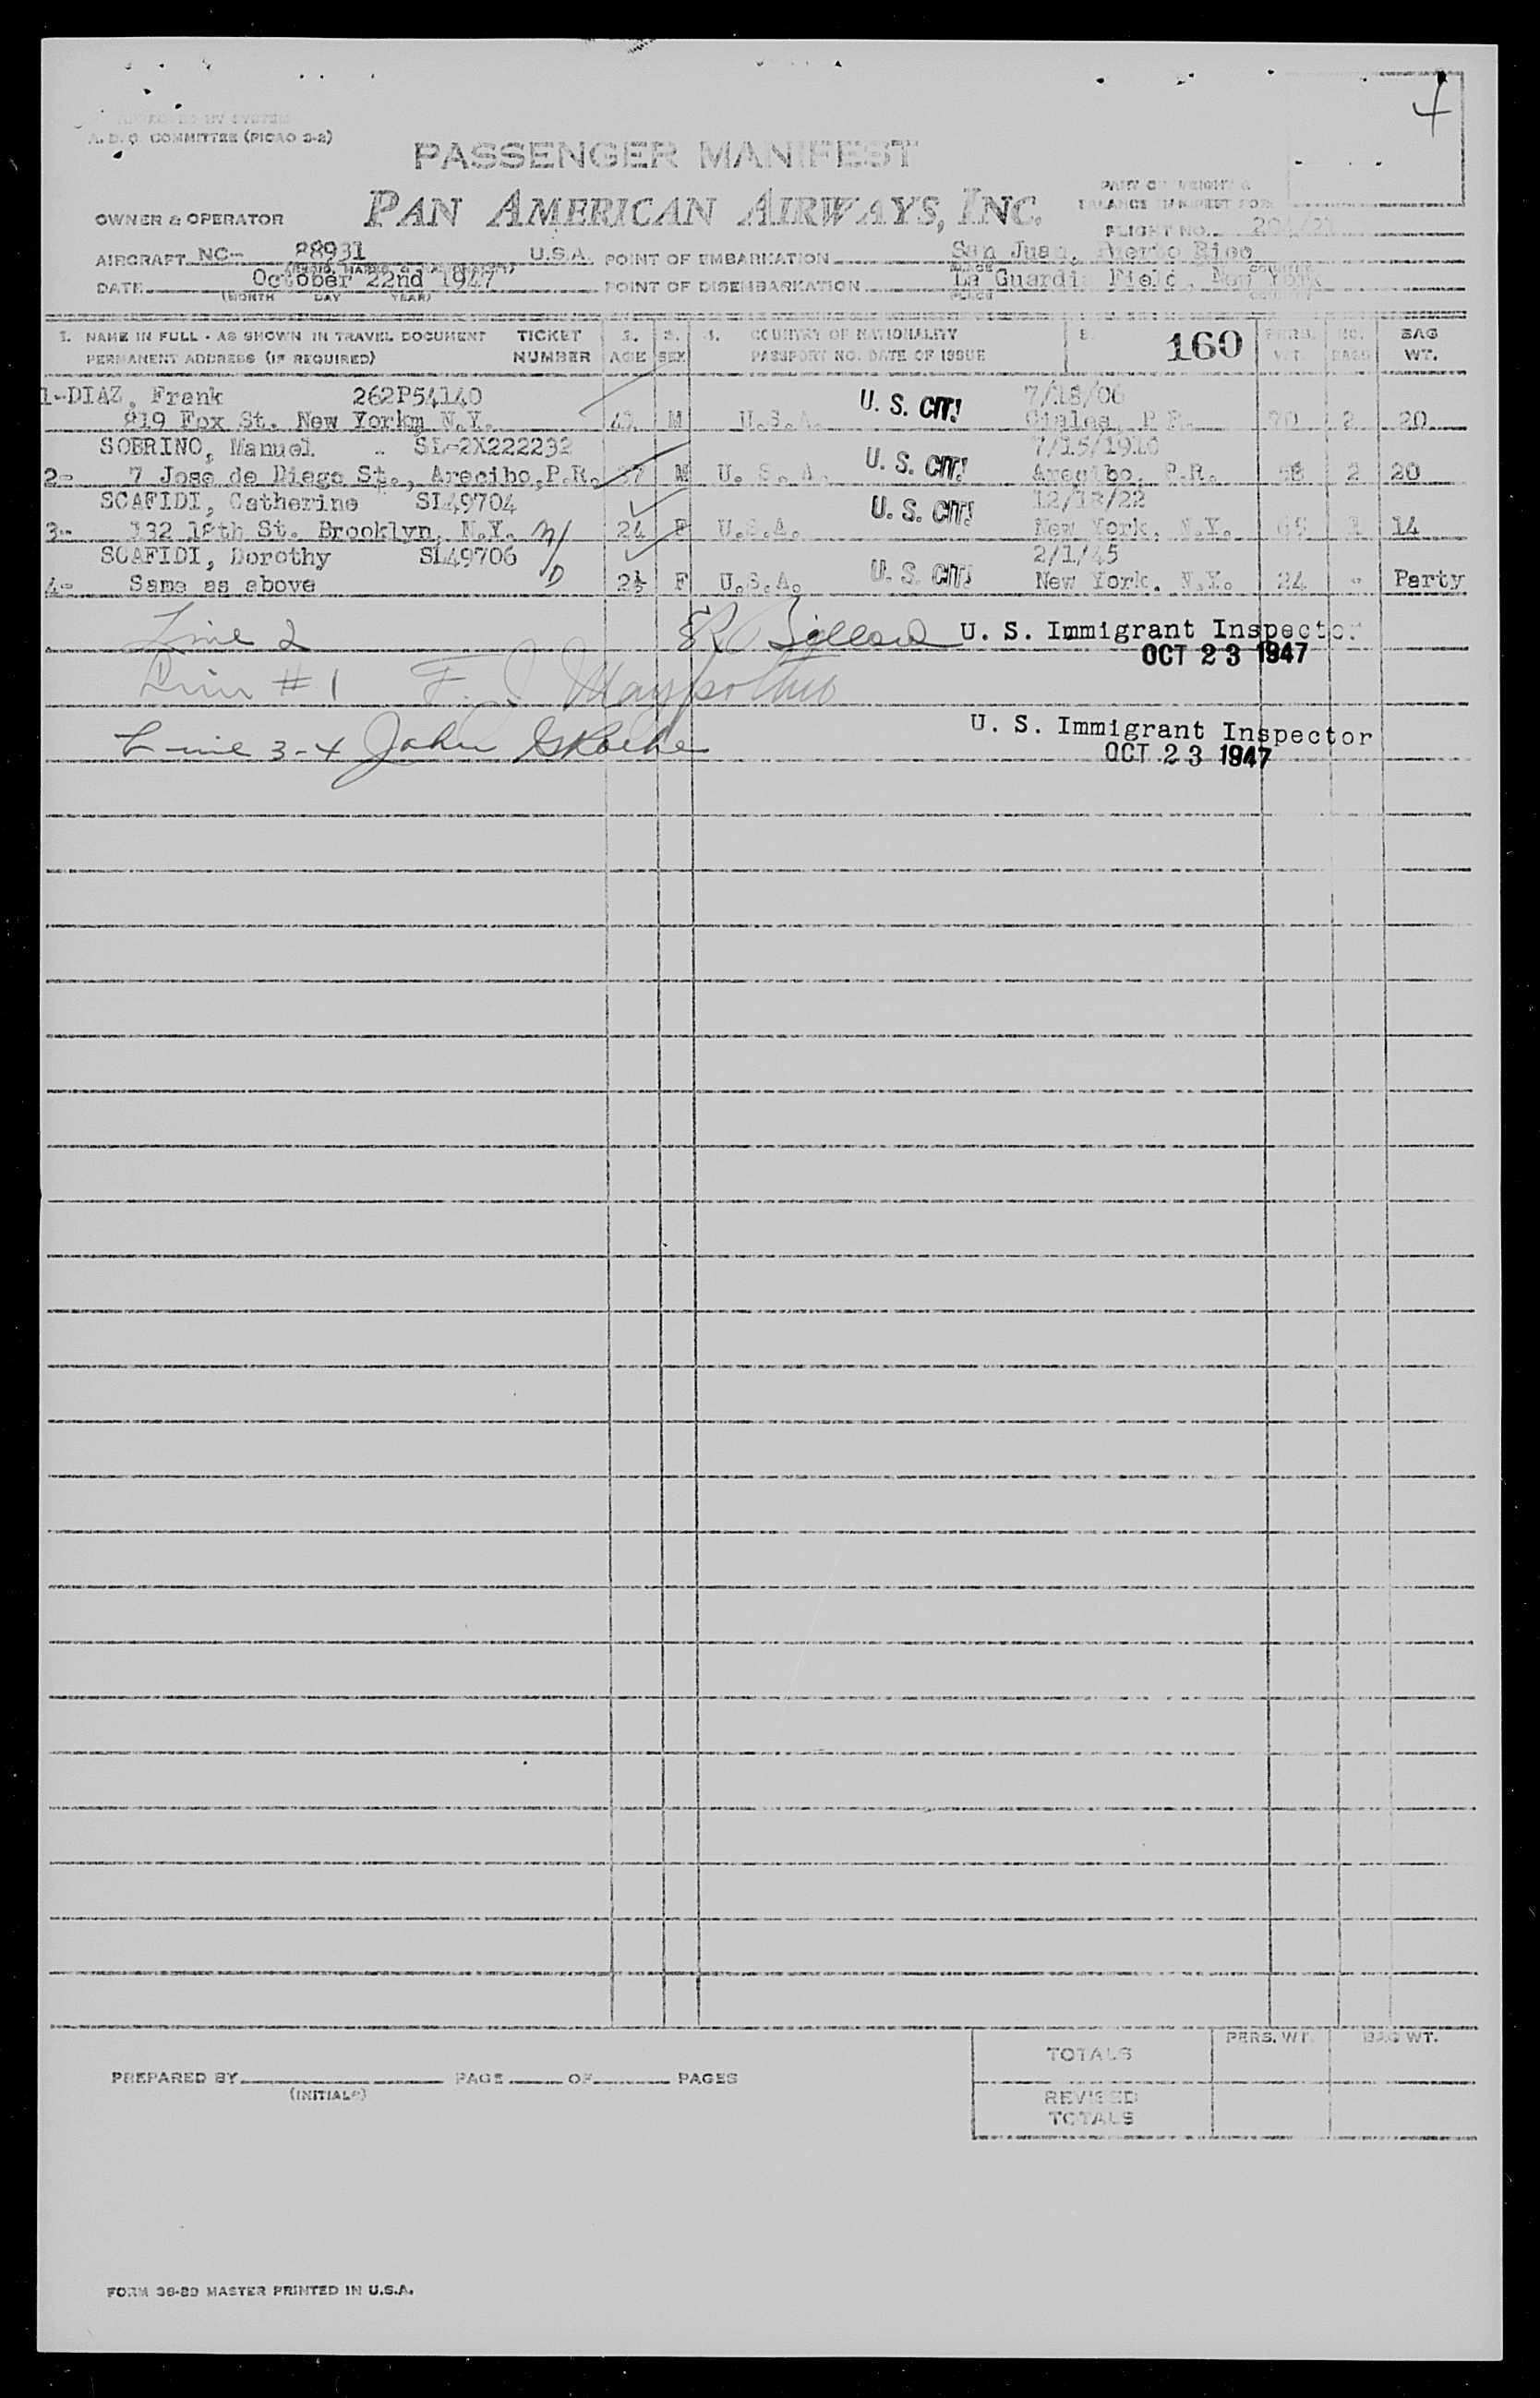 4
A. D. O. COMMITTEE (PICAO 2-2)
PASSENGER MANIFEST
PAN AMERICAN AIRWAYS, INC.
OWNER & OPERATOR
FLIGHT NO.
AIRCRAFT NC- 28931 U.S.A. POINT OF EMBARKATION San Juan, Puerto Rico
DATE October 22nd 1947 POINT OF DISEMBARKATION La Guardia Field, New York
(MONTH DAY YEAR) PLACE COUNTRY
1. NAME IN FULL - AS SHOWN IN TRAVEL DOCUMENT TICKET 2. 3. 4. COUNTRY OF NATIONALITY 5. 160 PERS. NO. BAG
PERMANENT ADDRESS (IF REQUIRED) NUMBER AGE SEX PASSPORT NO. DATE OF ISSUE WT. BAGS WT.
1-DIAZ, Frank 262P54140 U. S. CIT! 7/18/06
819 Fox St. New Yorkm N.Y. 41 M U.S.A. Ciales, P.R. 70 2 20
SOBRINO, Manuel SL-2X222232 U. S. CIT! 7/15/1910
2- 7 Jose de Diego St., Arecibo,P.R. 37 M U. S. A. Arecibo, P.R. 2 20
SCAFIDI, Catherine SL49704 U. S. CIT! 12/18/22
3- 132 18th St. Brooklyn, N.Y. 24 F U.S.A. New York, N.Y. 1 14
SCAFIDI, Dorothy SL49706 U. S. CIT! 2/1/45
4- Same as above 2½ F U.S.A. New York, N.Y. 24 - Party
Line 2 U. S. Immigrant Inspector
OCT 23 1947
Line # 1
U. S. Immigrant Inspector
Line 3-4 John OCT 23 1947
TOTALS PERS. WT. BAG WT.
PREPARED BY PAGE OF PAGES
(INITIALS)
REVISED
TOTALS
FORM 36-80 MASTER PRINTED IN U.S.A.